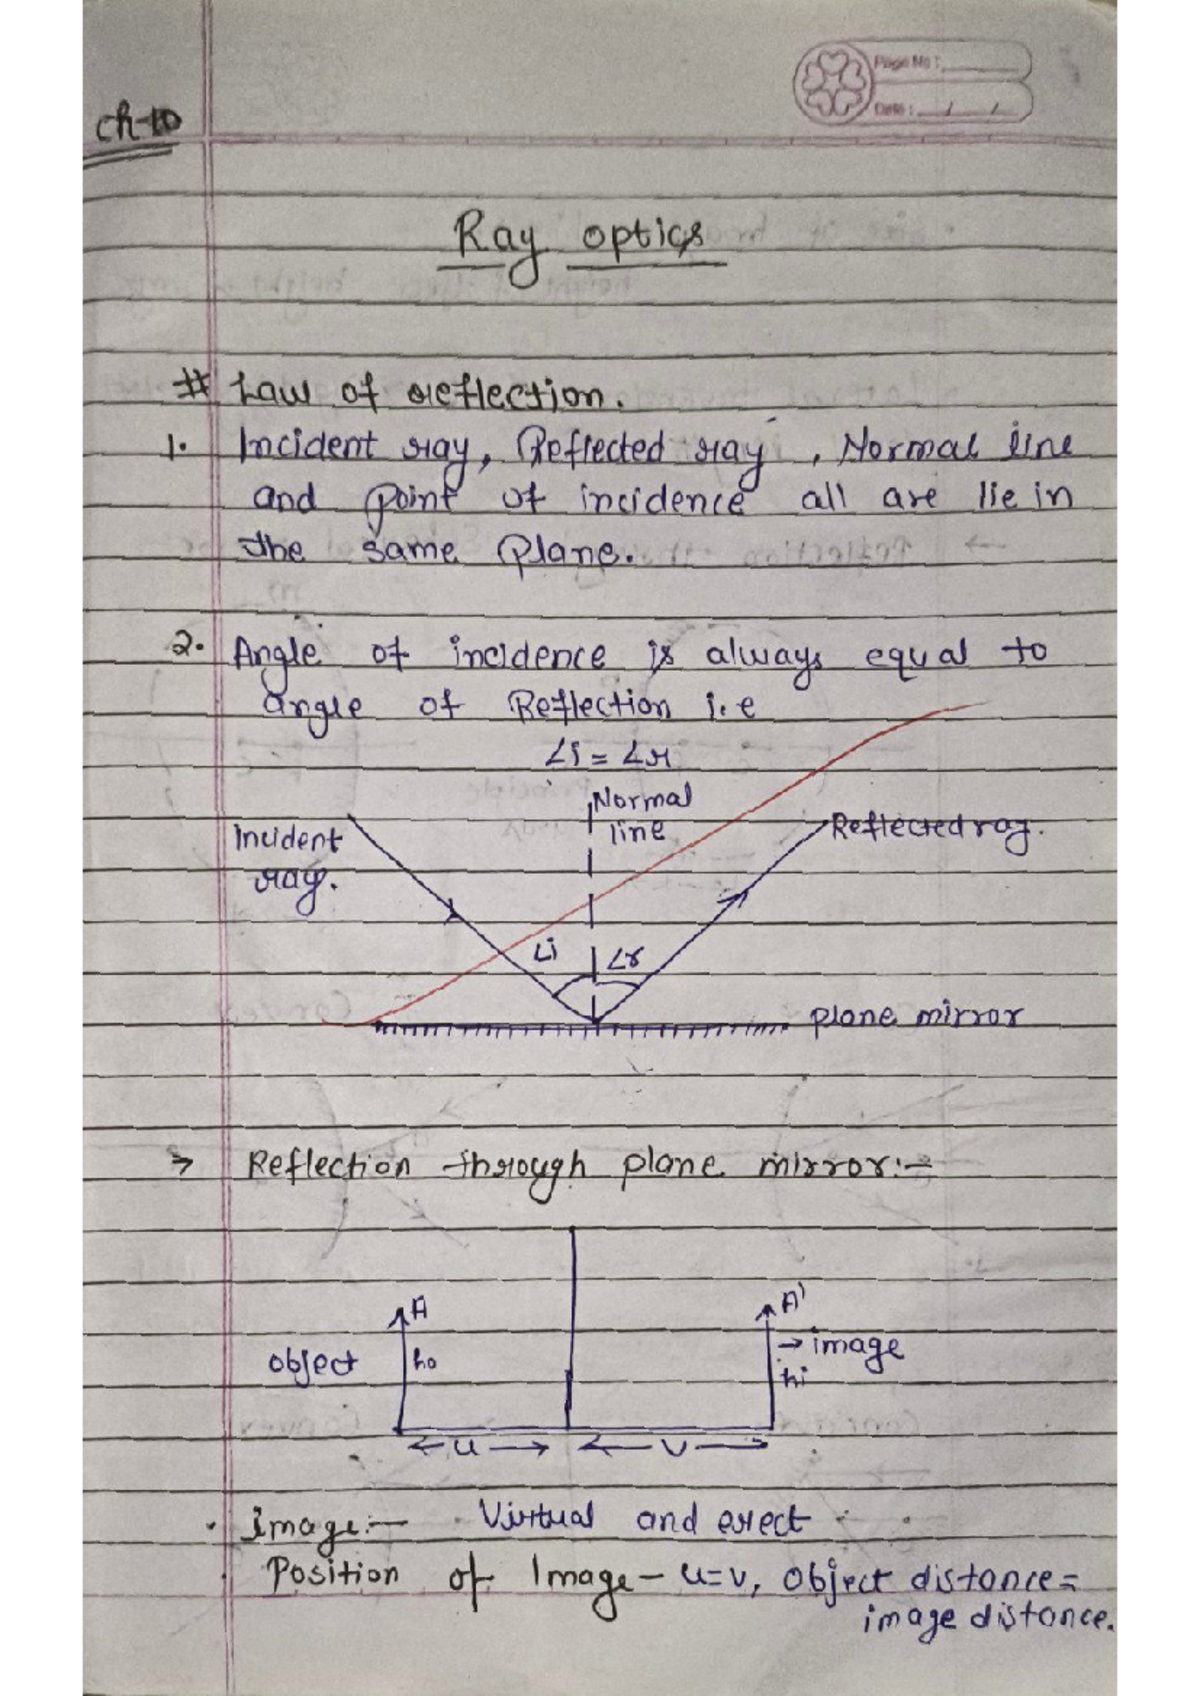 Page No:
Date: / /
Ch-10
Ray optics
# Law of reflection.
1. Incident ray, Reflected ray, Normal line
and point of incidence all are lie in
the same plane.
2. Angle of incidence is always equal to
angle of Reflection i.e
∠i = ∠r
Normal
line
Incident
ray.
Reflected ray.
∠i ∠r
plane mirror
→ Reflection through plane mirror:-
A
A'
object
ho
→ image
hi
u
v
Image:- Virtual and erect
Position of Image - u=v, object distance =
image distance.